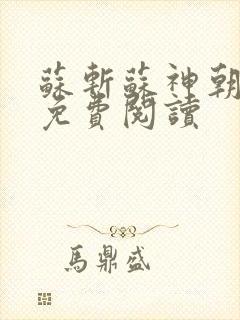 蘇斬蘇神朝
免費閱讀
馬鼎盛